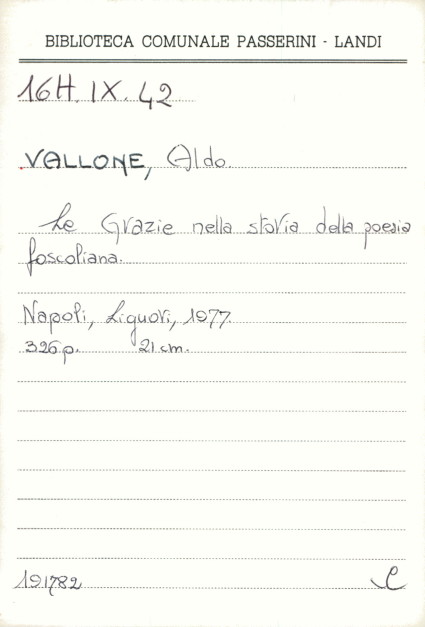 BIBLIOTECA COMUNALE PASSERINI - LANDI
16H.IX.42
VALLONE, Aldo.
Le Grazie nella storia della poesia
foscoliana.
Napoli, Liguori, 1977.
326 p. 21 cm.
191782 C